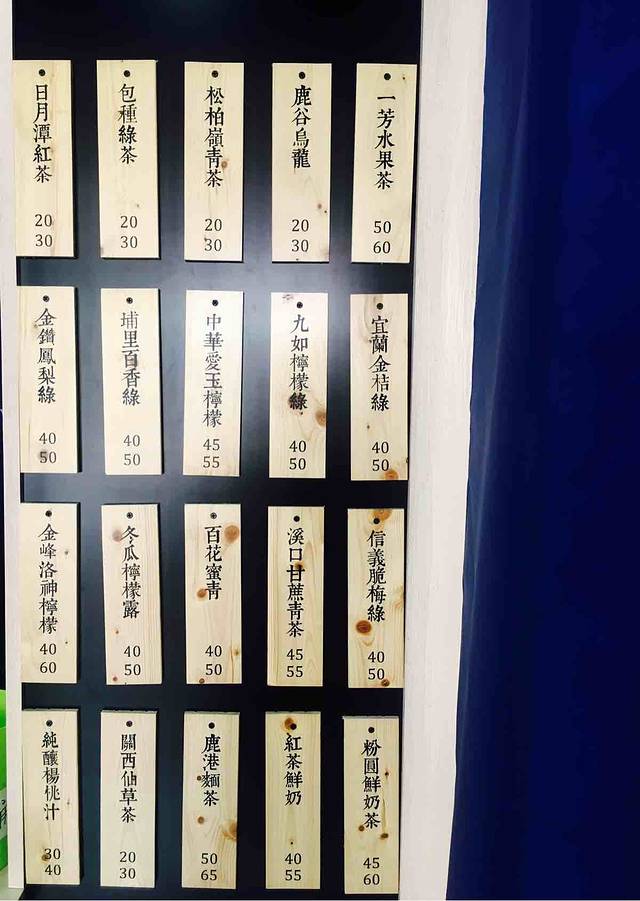 一芳水果茶
50
60
鹿谷烏龍
20
30
松柏嶺青茶
20
30
包種綠茶
20
30
日月潭紅茶
20
30
宜蘭金桔綠
40
50
九如檸檬綠
40
50
中華愛玉檸檬
45
55
埔里百香綠
40
50
金鑽鳳梨綠
40
50
信義脆梅綠
40
50
溪口甘蔗青茶
45
55
百花蜜青
40
50
冬瓜檸檬露
40
50
金峰洛神檸檬
40
60
粉圓鮮奶茶
45
60
紅茶鮮奶
40
55
鹿港麵茶
50
65
關西仙草茶
20
30
純釀楊桃汁
30
40